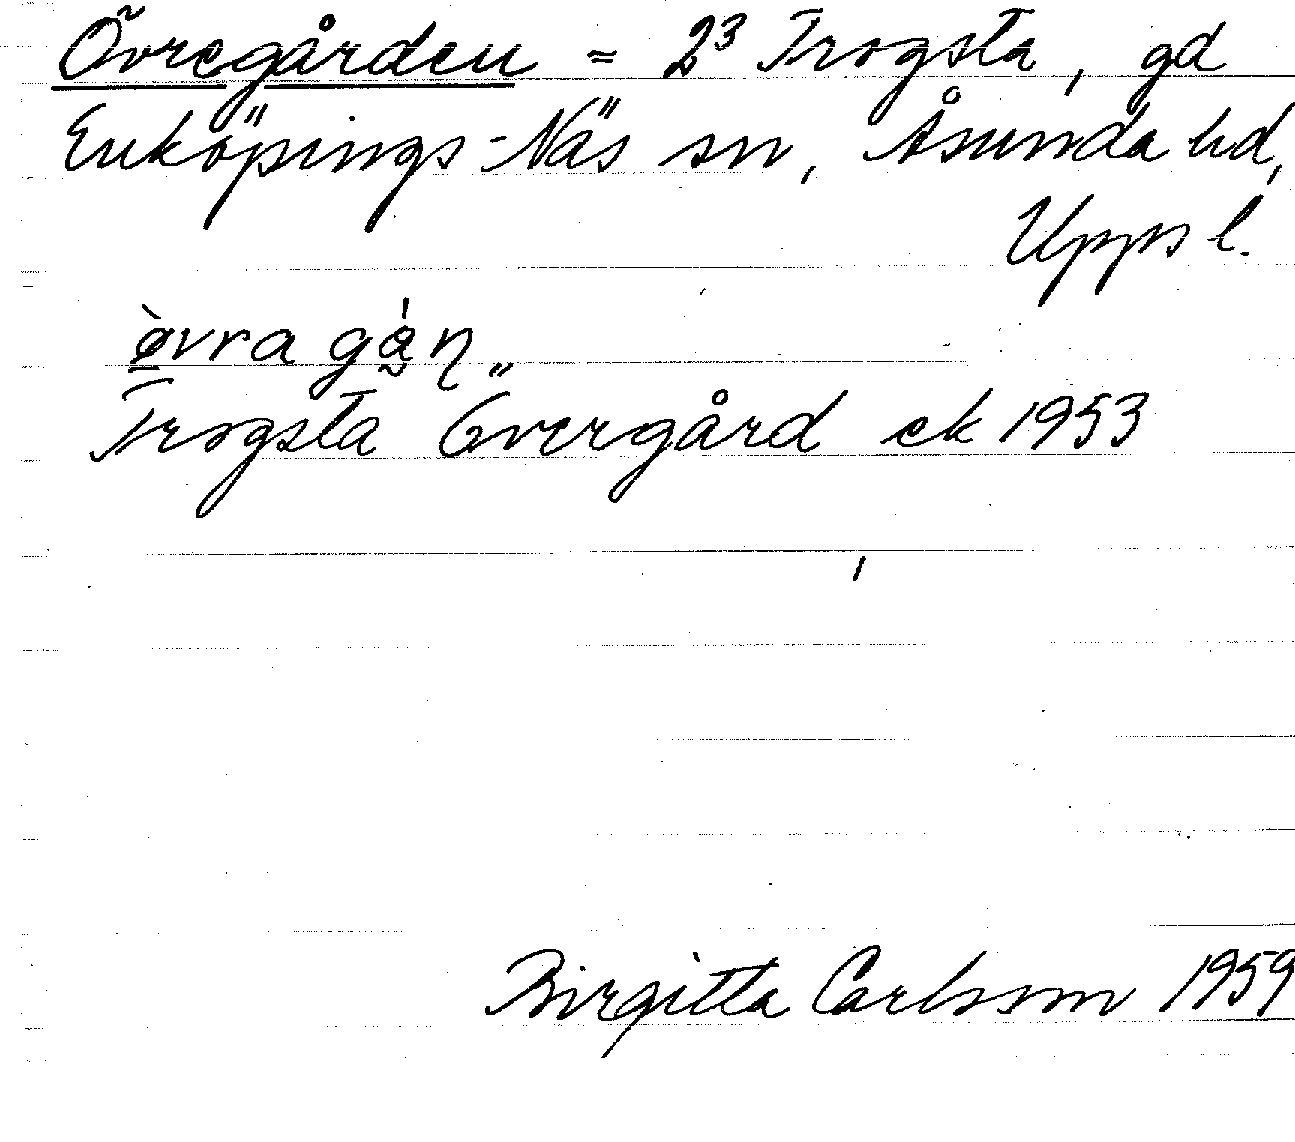 Övregården = 2³ Trogsta, gd
Enköpings-Näs sn, Åsunda hd,
Upps l.
Trogsta Övergård ek 1953
Birgitta Carlsson 1959